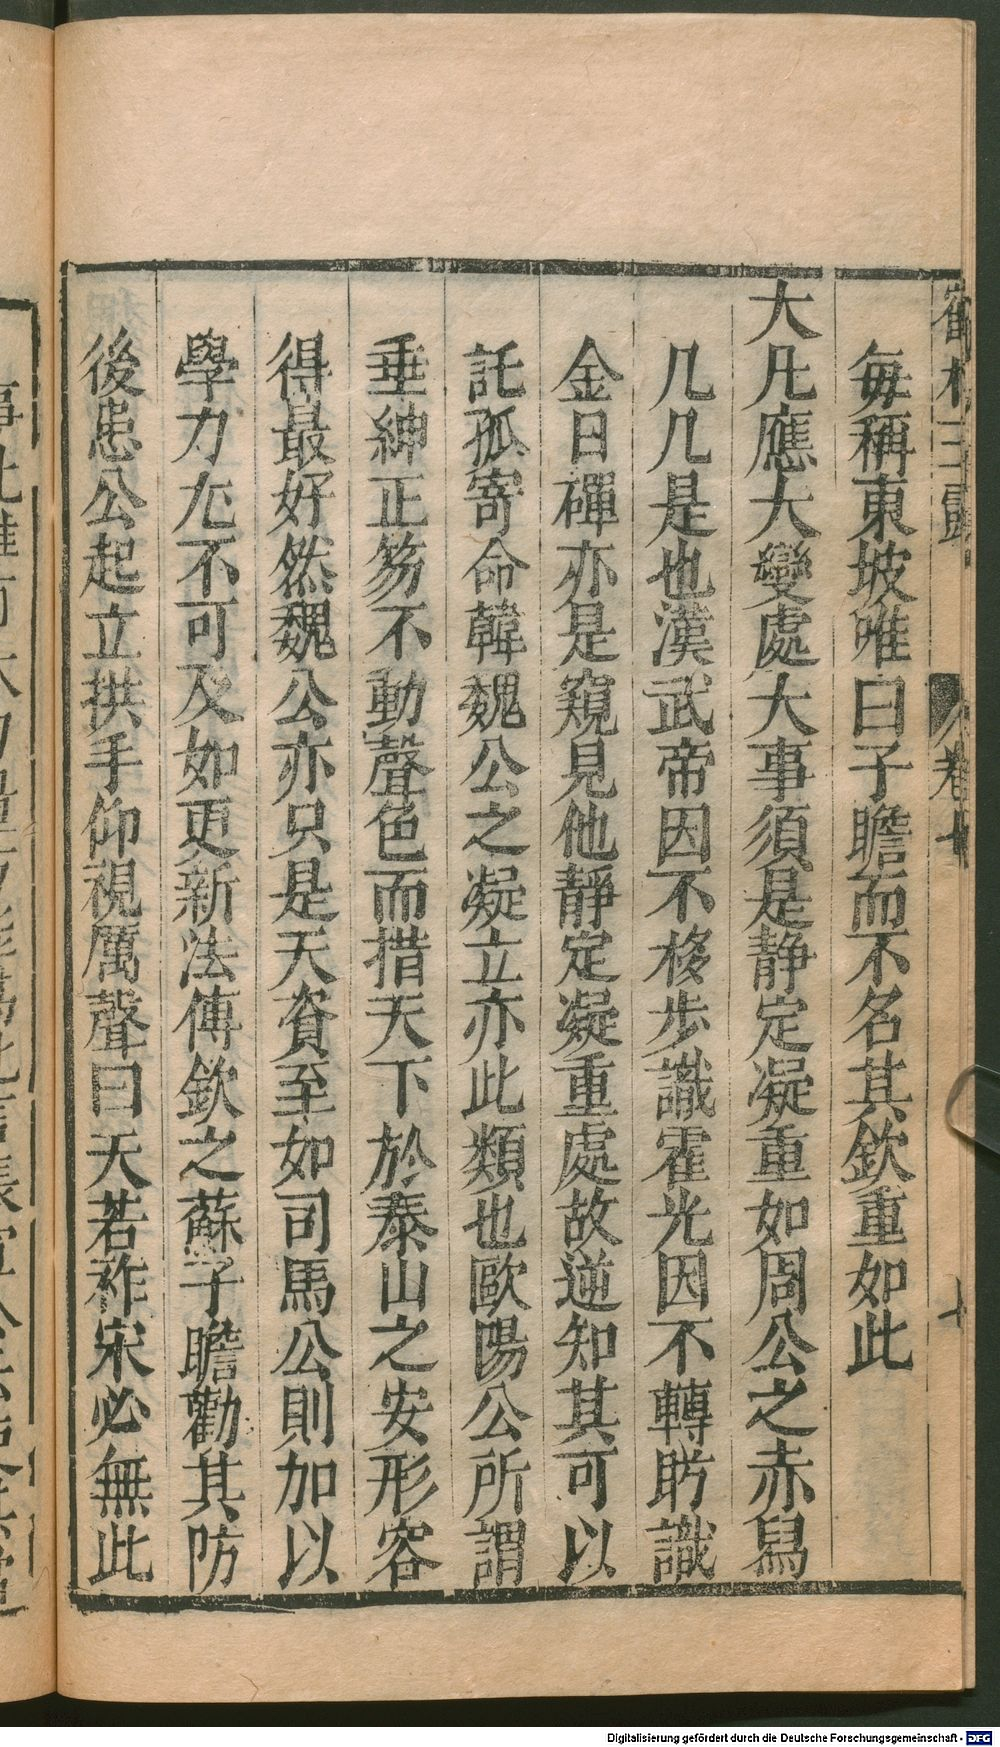 每稱東坡唯曰子瞻而不名其欽重如此
大凡應大變處大事須是靜定凝重如周公之赤舄
几几是也漢武帝因不移步識霍光因不轉眄識
金日磾亦是窺見他靜定凝重處故逆知其可以
託孤寄命韓魏公之凝立亦此類也歐陽公所謂
垂紳正笏不動聲色而措天下於泰山之安形容
得最好然魏公亦只是天資至如司馬公則加以
學力尢不可及如更新法傅欽之蘇子瞻勸其防
後患公起立拱手仰視厲聲曰天若祚宋必無此
卷七
七
Digitalisierung gefördert durch die Deutsche Forschungsgemeinschaft - DFG